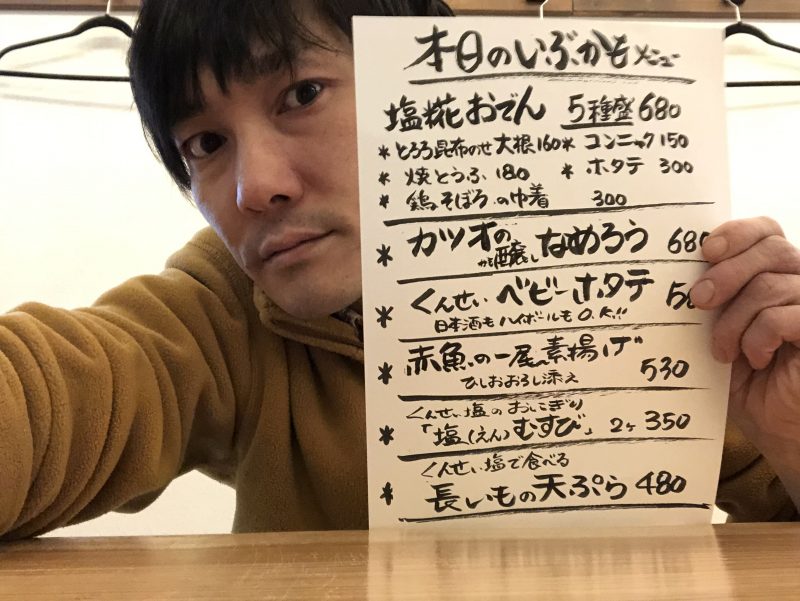 本日のいぶかもメニュー
塩糀おでん 5種盛 680
* とろろ昆布のせ大根160 * コンニャク 150
* 焼とうふ 180 * ホタテ 300
* 鶏そぼろの巾着 300
* カツオの かもし醸し なめろう 680
* くんせい ベビーホタテ 58
日本酒もハイボールもO.K!!
* 赤魚の一尾素揚げ 530
ひしおおろし添え
くんせい塩のおにぎり
* 「塩(えん)むすび」 2ヶ 350
くんせい塩で食べる
* 長いもの天ぷら 480